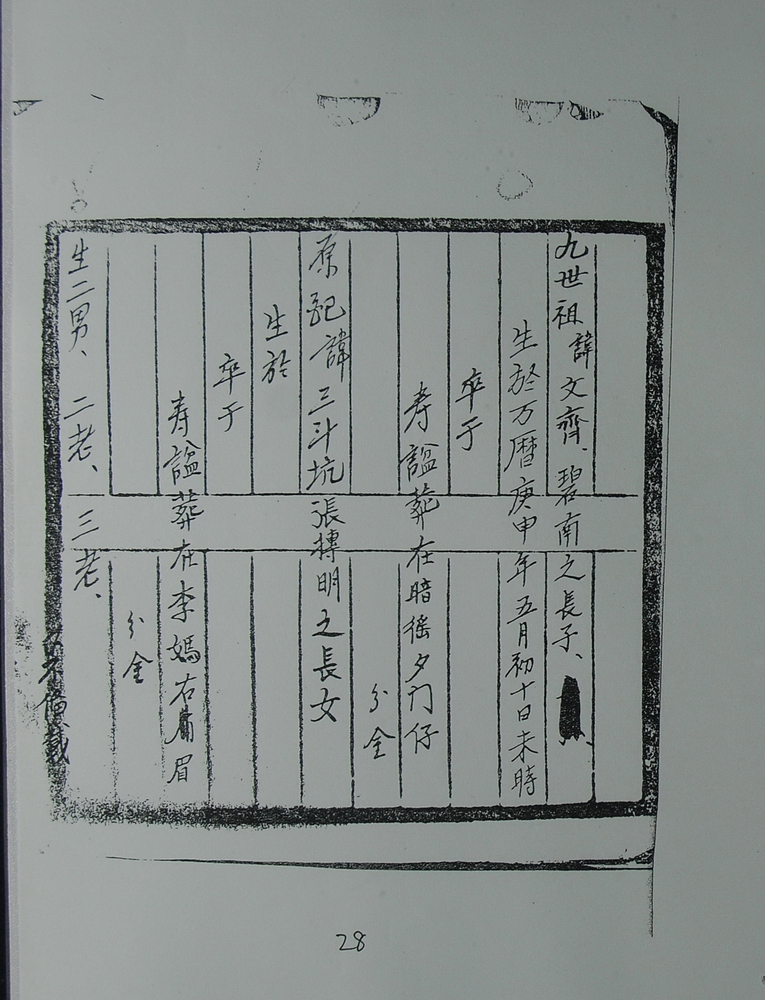 九世祖諱文齊、碧南之長子、
生於万曆庚申年五月初十日未時
卒于
寿謚葬在暗徭夕门仔
分金
原配諱三斗坑張摶明之長女
生於
卒于
寿謚葬在李媽右眉
分金
生二男、二老、三老、
28